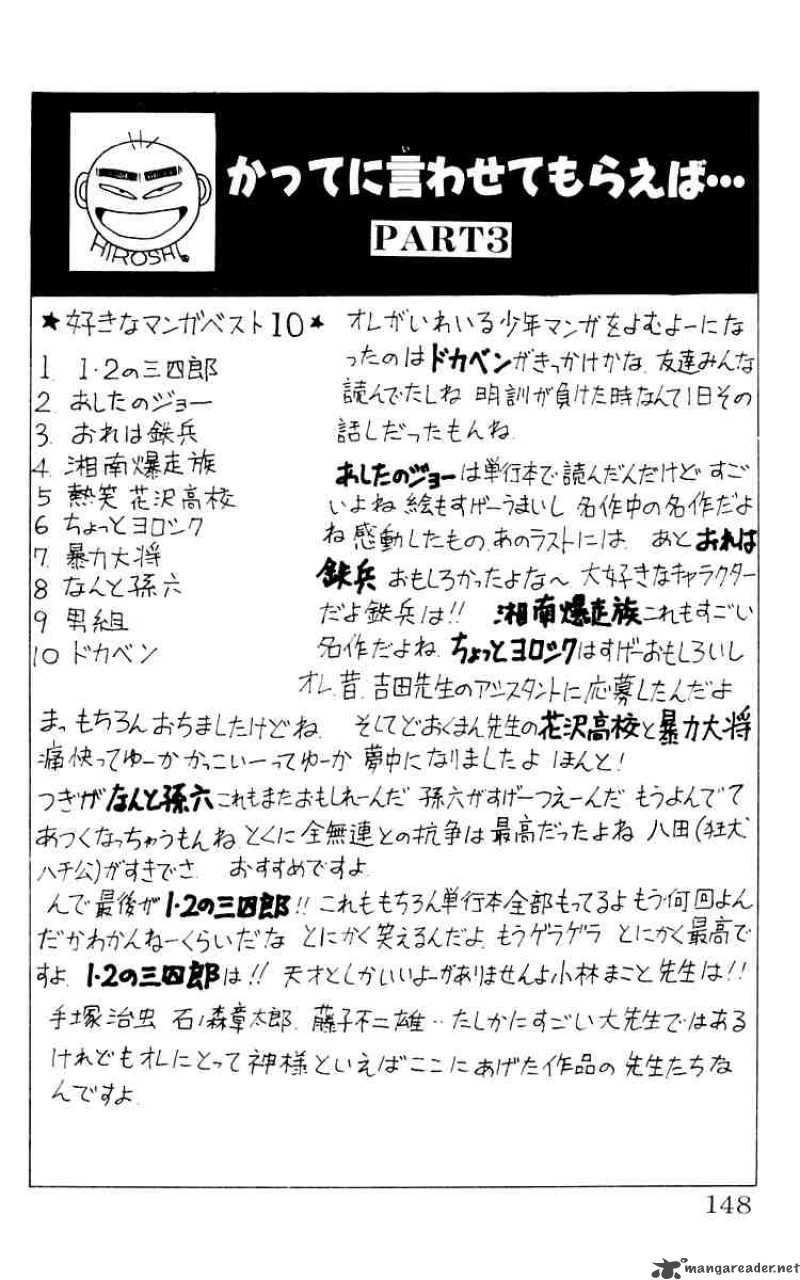 かってに言わせてもらえば…
い
PART3
HIROSHI.
★好きなマンガベスト10★
1 1・2の三四郎
2 あしたのジョー
3. おれは鉄兵
4. 湘南爆走族
5 熱笑 花沢高校
6 ちょっとヨロシク
7. 暴力大将
8 なんと孫六
9 男組
10 ドカベン
オレがいわいる少年マンガをよむよーにな
ったのはドカベンがきっかけかな. 友達みんな
読んでたしね 明訓が負けた時なんて1日その
話しだったもんね.
あしたのジョーは単行本で読んだんだけど すご
いよね 絵もすげーうまいし 名作中の名作だよ
ね 感動したもの. あのラストには. あと おれは
鉄兵 おもしろかったよな〜 大好きなキャラクター
だよ鉄兵は!! 湘南爆走族これもすごい
名作だよね. ちょっとヨロシクはすげーおもしろいし
オレ. 昔. 吉田先生のアシスタントに応募したんだよ
まっ もちろん おちましたけどね. そしてどおくまん先生の花沢高校と暴力大将
痛快ってゆーか かっこいーってゆーか 夢中になりましたよ ほんと!
つぎが なんと孫六 これもまたおもしれーんだ 孫六がすげーつえーんだ もうよんでて
あつくなっちゃうもんね とくに 全無連との抗争は 最高だったよね 八田(狂犬
ハチ公)がすきでさ. おすすめですよ.
んで最後が 1・2の三四郎!! これももちろん単行本全部もってるよ もう何回よん
だかわかんねーくらいだな とにかく笑えるんだよ. もうゲラゲラ とにかく最高で
すよ. 1・2の三四郎は!! 天才としかいいよーがありませんよ小林まこと先生は!!
手塚治虫 石ノ森章太郎. 藤子不二雄‥たしかにすごい大先生ではある
けれどもオレにとって神様といえばここにあげた作品の先生たちな
んですよ.
148
mangareader.net